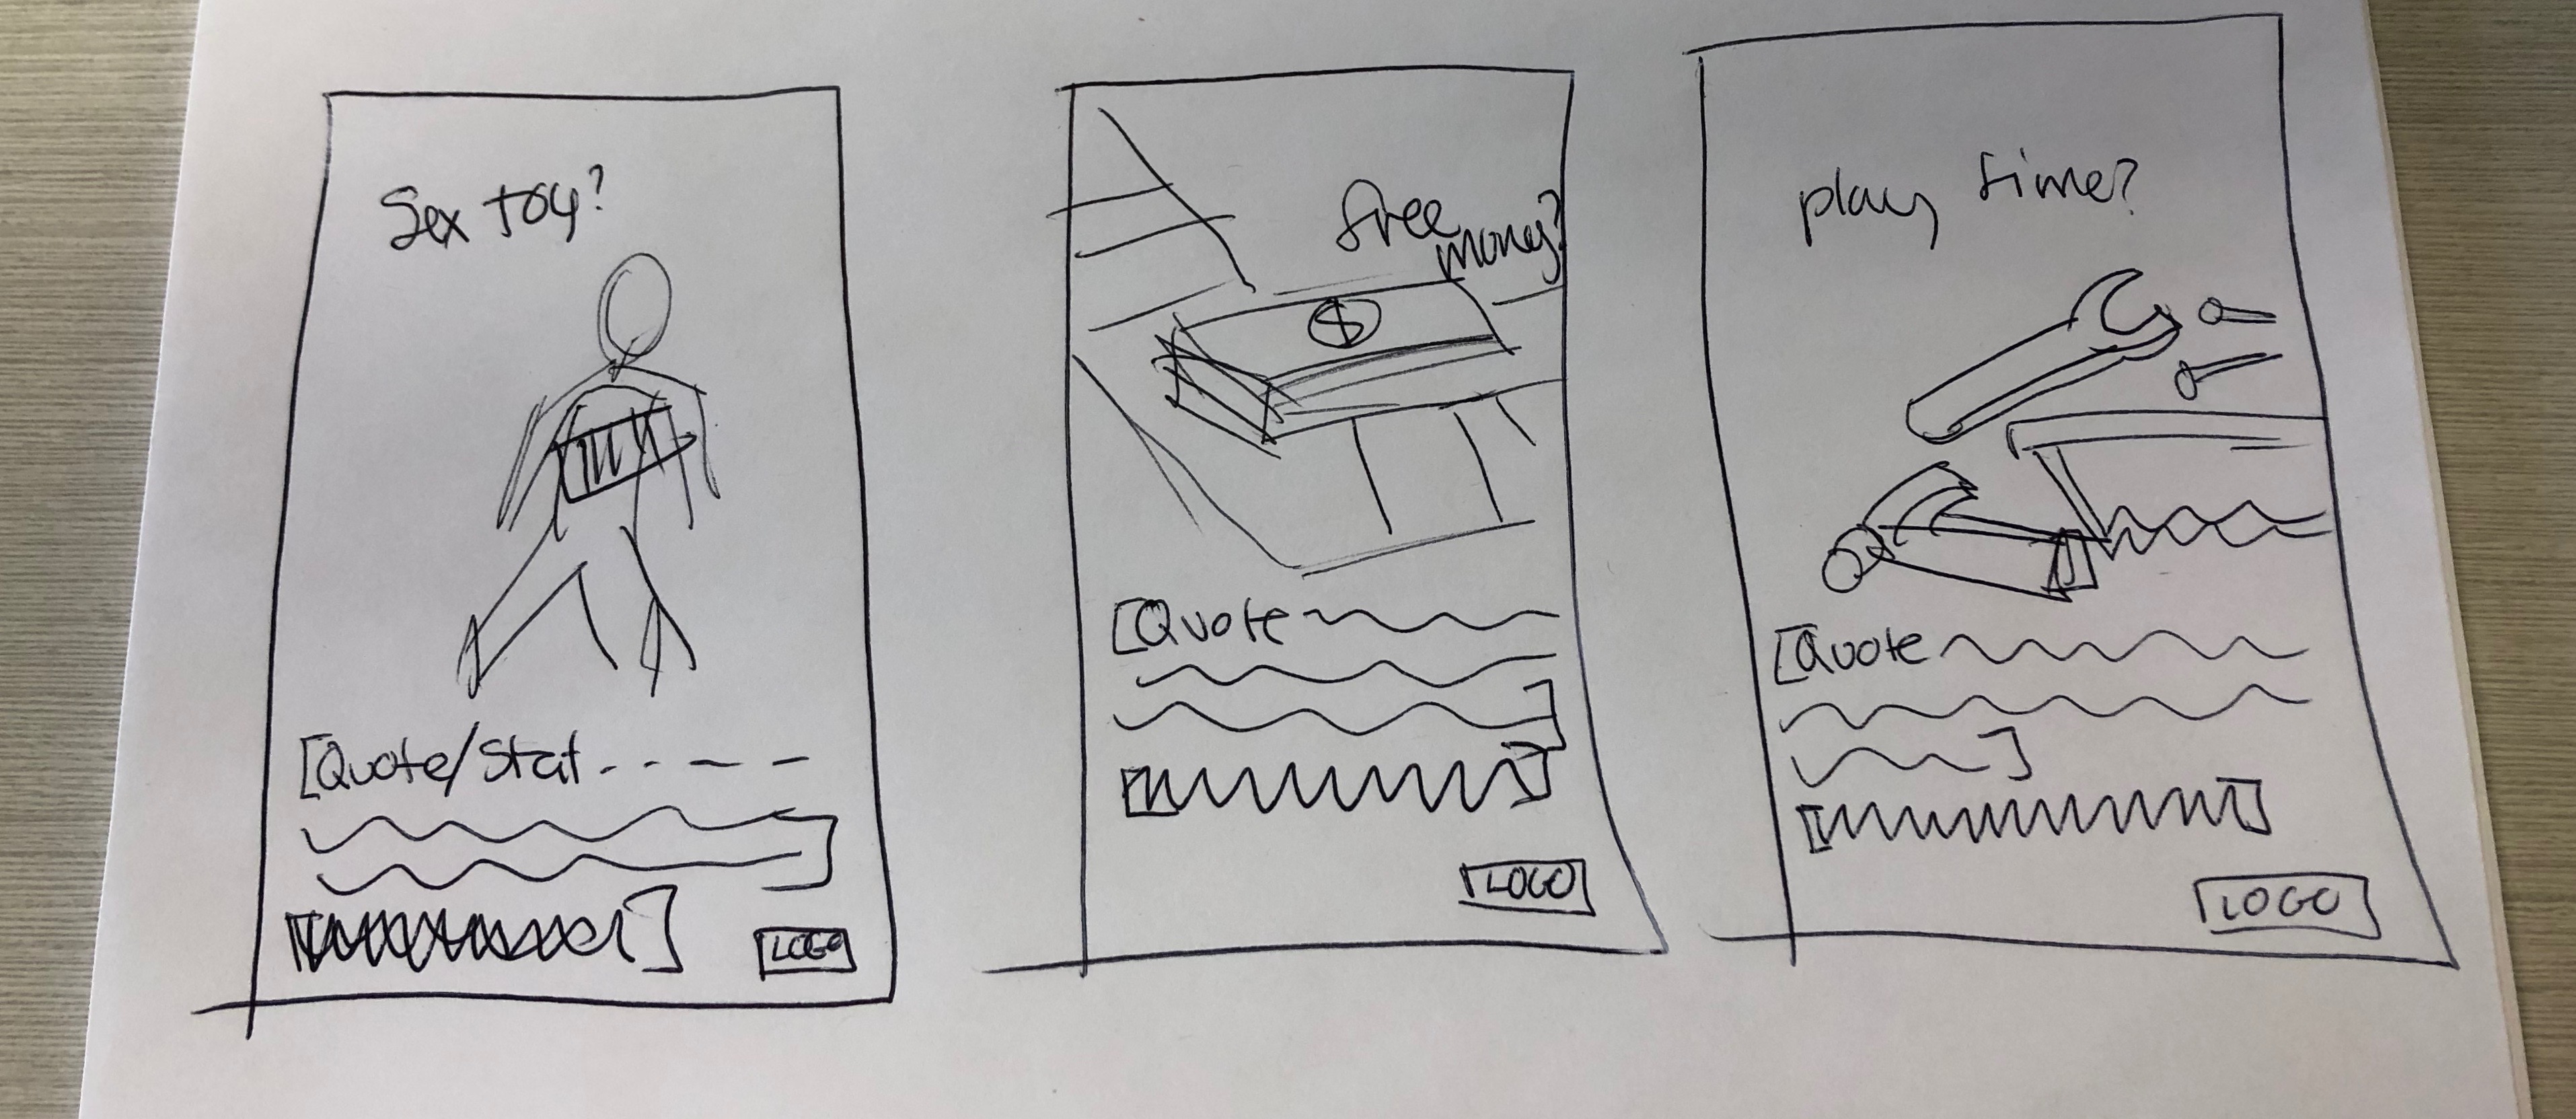 Sex toy?
[Quote/Stat
LOGO
free
money?
[Quote
LOGO
play time?
[Quote
LOGO